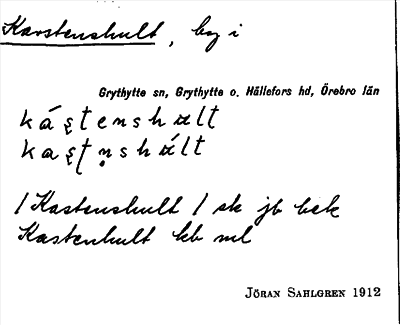 Karstenshult, by i
Grythytte sn, Grythytte o. Hällefors hd, Örebro län
kástenshult
kastn̥shúlt
/Kastenshult/ sk jb bek
Kastenhult kb ml
JÖRAN SAHLGREN 1912